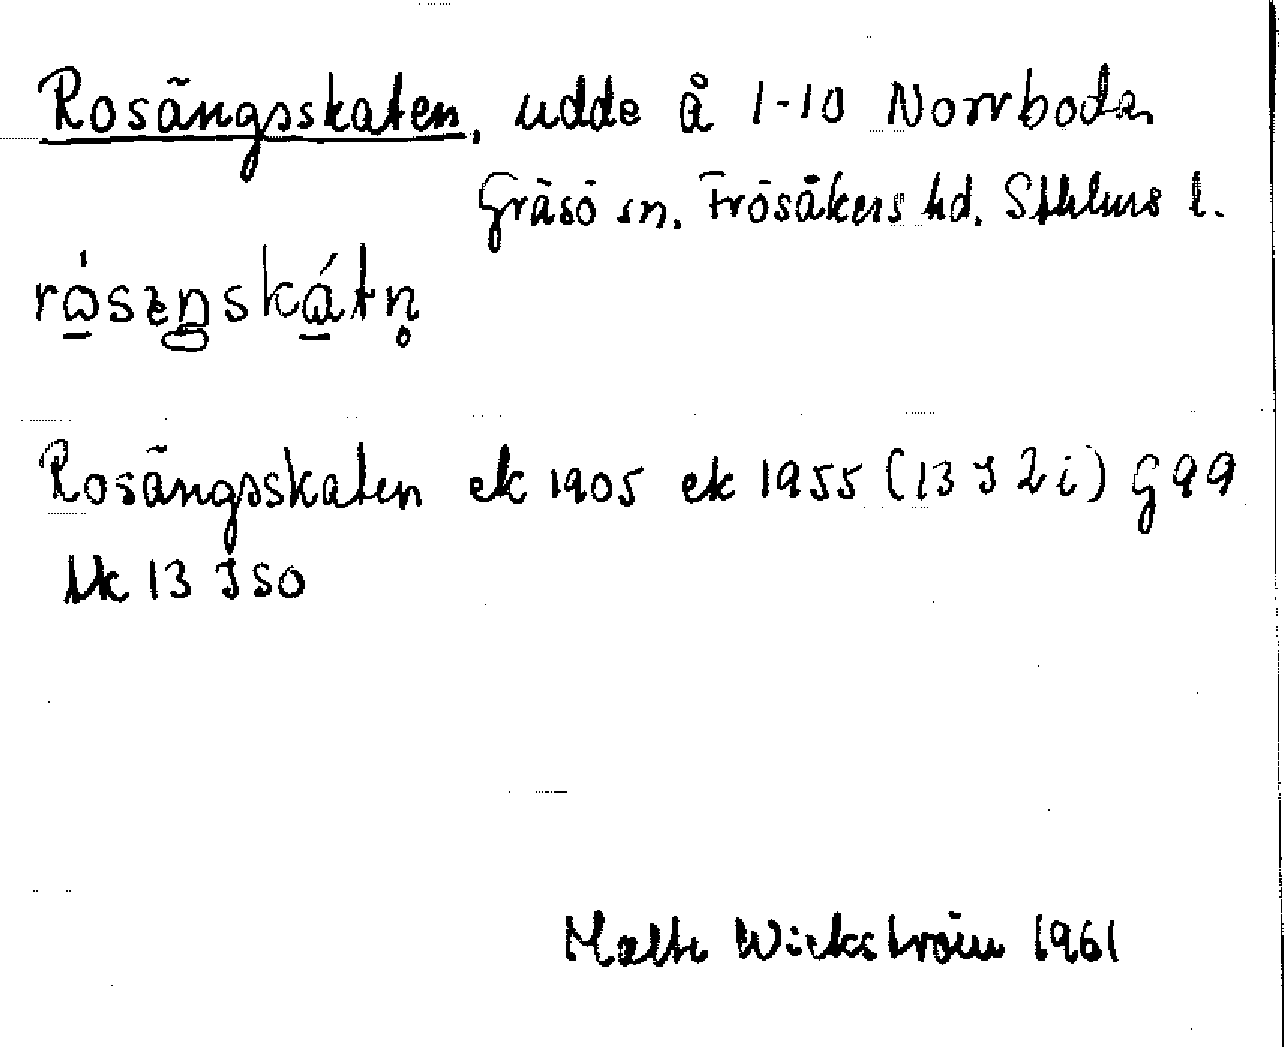 Rosängsskaten, udde å 1-10 Norrboda
Gräsö sn. Frösåkers hd. Sthlms l.
Rosängsskaten ek 1905 ek 1955 (13 J 2i) G 99
13 J SO
Malte Wickström 1961